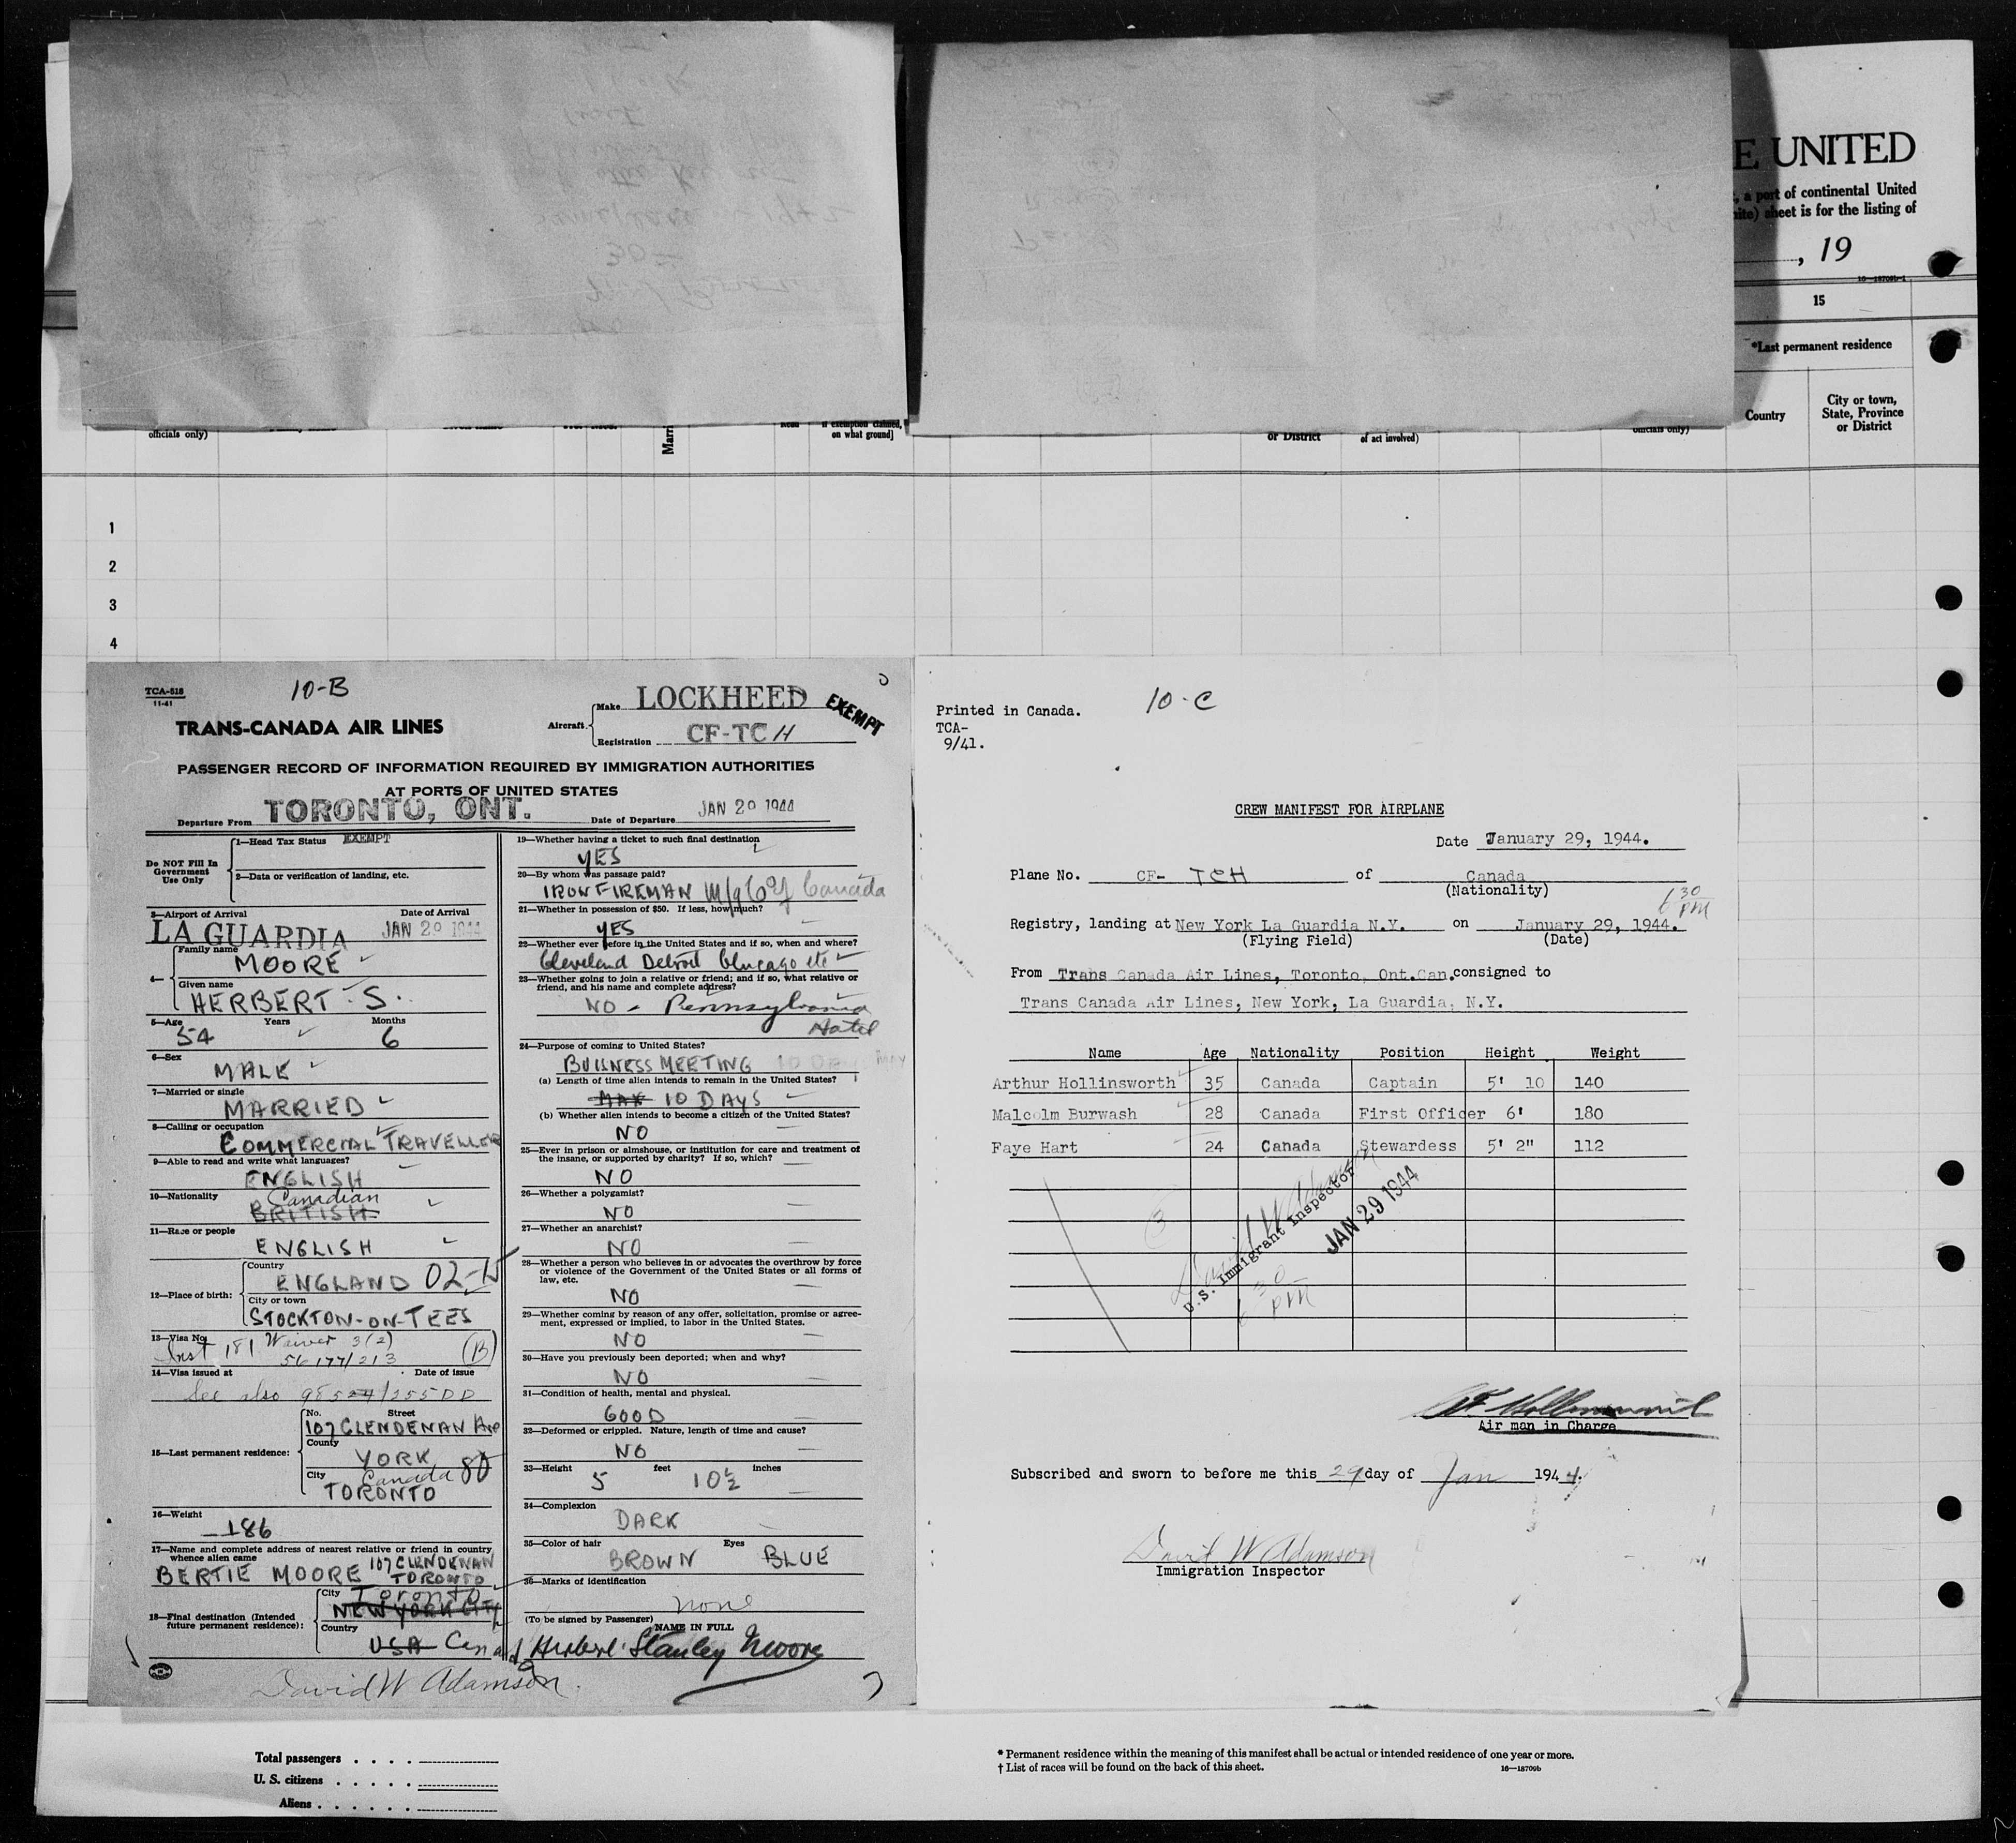 E UNITED
, a port of continental United
sheet is for the listing of
, 19
15
*Last permanent residence
Country
City or town,
State, Province
or District
officials only)
on what ground]
or District
of act involved)
officials only)
1
2
3
4
TCA-518
11-41
10-B
TRANS-CANADA AIR LINES
Aircraft.
Make LOCKHEED
Registration CF-TC H
EXEMPT
PASSENGER RECORD OF INFORMATION REQUIRED BY IMMIGRATION AUTHORITIES
AT PORTS OF UNITED STATES
Departure From TORONTO, ONT. Date of Departure JAN 29 1944
Do NOT Fill In
Government
Use Only
1—Head Tax Status EXEMPT
2—Data or verification of landing, etc.
3—Airport of Arrival Date of Arrival
LA GUARDIA JAN 29 1944
4—
Family name
MOORE
Given name
HERBERT S.
5—Age Years Months
54 6
6—Sex
MALE
7—Married or single
MARRIED
8—Calling or occupation
COMMERCIAL TRAVELLER
9—Able to read and write what languages?
ENGLISH
10—Nationality Canadian
BRITISH
11—Race or people
ENGLISH
12—Place of birth:
Country
ENGLAND 02-15
City or town
STOCKTON-ON-TEES
13—Visa No. Waiver 3(2)
Inst 181 56177/213 (B)
14—Visa issued at Date of issue
See also 98524/255 DD
15—Last permanent residence:
No. Street
107 CLENDENAN Ave
County
YORK
City Canada
TORONTO
16—Weight
186
17—Name and complete address of nearest relative or friend in country
whence alien came
BERTIE MOORE 107 CLENDENAN
TORONTO
18—Final destination (Intended
future permanent residence):
City Toronto
NEW YORK CITY
Country
USA Canada
David W Adamson
19—Whether having a ticket to such final destination
YES
20—By whom was passage paid?
IRON FIREMAN Mfg Co of Canada
21—Whether in possession of $50. If less, how much?
YES
22—Whether ever before in the United States and if so, when and where?
Cleveland Detroit Chicago etc
23—Whether going to join a relative or friend; and if so, what relative or
friend, and his name and complete address?
NO - Pennsylvania
Hotel
24—Purpose of coming to United States?
BUSINESS MEETING
(a) Length of time alien intends to remain in the United States?
MAX 10 DAYS
(b) Whether alien intends to become a citizen of the United States?
NO
25—Ever in prison or almshouse, or institution for care and treatment of
the insane, or supported by charity? If so, which?
NO
26—Whether a polygamist?
NO
27—Whether an anarchist?
NO
28—Whether a person who believes in or advocates the overthrow by force
or violence of the Government of the United States or all forms of
law, etc.
NO
29—Whether coming by reason of any offer, solicitation, promise or agree-
ment, expressed or implied, to labor in the United States.
NO
30—Have you previously been deported; when and why?
NO
31—Condition of health, mental and physical.
GOOD
32—Deformed or crippled. Nature, length of time and cause?
NO
33—Height feet inches
5 10½
34—Complexion
DARK
35—Color of hair Eyes
BROWN BLUE
36—Marks of Identification
none
(To be signed by Passenger)
NAME IN FULL
Herbert Stanley Moore
Printed in Canada.
TCA-
9/41.
10-C
CREW MANIFEST FOR AIRPLANE
Date January 29, 1944.
Plane No. CF- TCH of Canada
(Nationality)
6 30
PM
Registry, landing at New York La Guardia N.Y. on January 29, 1944.
(Flying Field) (Date)
From Trans Canada Air Lines, Toronto, Ont.Can. consigned to
Trans Canada Air Lines, New York, La Guardia, N.Y.
Name Age Nationality Position Height Weight
Arthur Hollinsworth 35 Canada Captain 5' 10 140
Malcolm Burwash 28 Canada First Officer 6' 180
Faye Hart 24 Canada Stewardess 5' 2" 112
3
David W Adamson
U.S. Immigrant Inspector
JAN 29 1944
6 30
PM
Air man in Charge
Subscribed and sworn to before me this 29 day of Jan 1944.
David W Adamson
Immigration Inspector
Total passengers
U. S. citizens
Aliens
* Permanent residence within the meaning of this manifest shall be actual or intended residence of one year or more.
† List of races will be found on the back of this sheet.
16—18709b